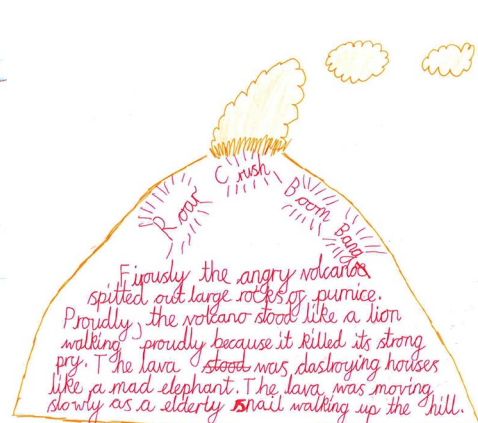 Roar
Crush
Boom
Bang
Firously the angry volcano
spitted out large rocks of pumice.
Proudly, the volcano stood like a lion
walking proudly because it killed its strong
pry. The lava stood was dastroying houses
like a mad elephant. The lava was moving
slowly as a elderly snail walking up the hill.